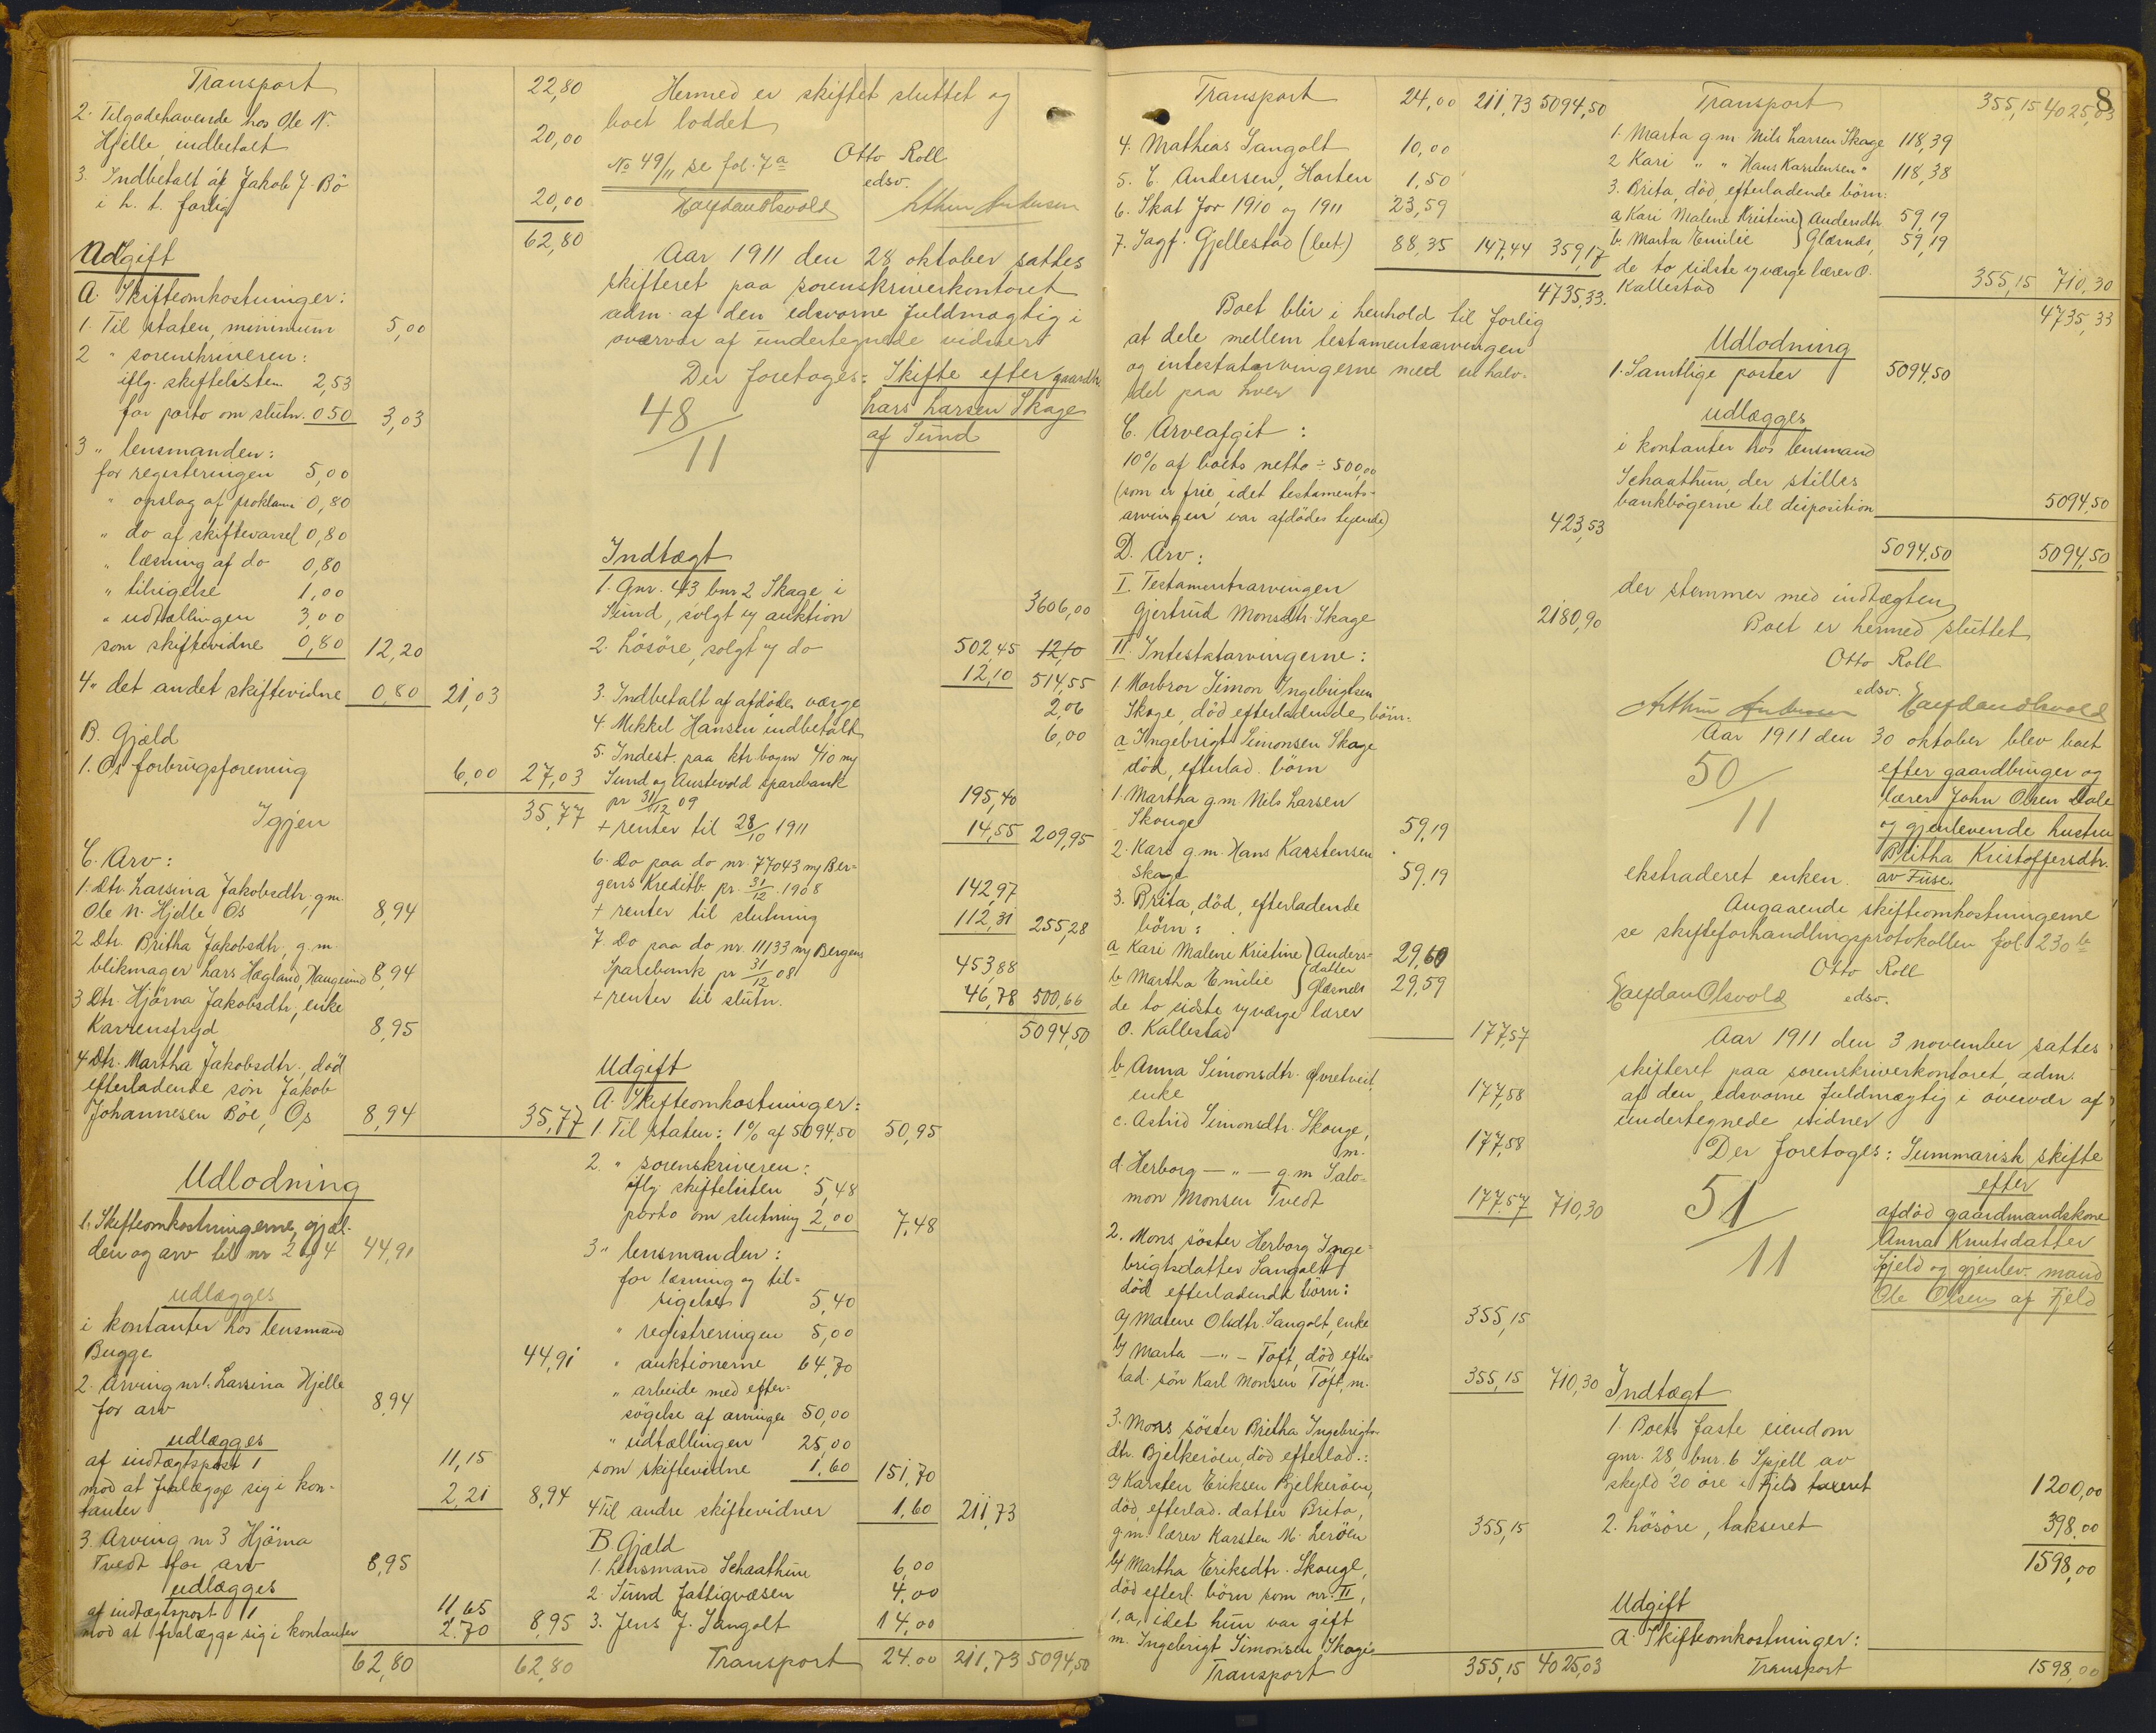 Transport 22,80
2. Tilgodehavende hos Ole N.
Hjelle indbetalt 20,00
3. Indbetalt af Jakob J. Bö
i h. t. forlig 20,00
62,80
Udgift
A. Skifteomkostninger:
1. Til staten, minimum 5,00
2 " sorenskriveren:
iflg. skiftelisten 2,53
for porto om slutn. 0 50 3,03
3 " lensmanden:
for registeringen 5,00
" opslag af proklam 0,80
" do af skiftevarsel 0,80
" læsning af do 0,80
" tilsigelse 1,00
" udtællingen 3,00
som skiftevidne 0,80 12,20
4 " det andet skiftevidne 0,80 21,03
B. Gjæld
1. Os forbrugsforening 6,00 27,03
Igjen 35,77
C. Arv:
1. Dtr. Larsina Jakobsdtr. g.m.
Ole N. Hjelle Os 8,94
2 Dtr. Britha Jakobsdtr, g.m.
blikmager Lars Hægland, Haugesund 8,94
3 Dtr. Hjörna Jakobsdtr, enke
Karrensfryd 8,95
4 Dtr. Martha Jakobsdtr., död
efterladende sön Jakob
Johannesen Böe, Os 8,94 35,77
Udlodning
1. Skifteomkostningerne, gjæl-
den og arv til nr 2 og 4 44,91
udlægges
i kontanter hos lensmand
Bugge 44,91
2. Arving nr 1. Larsina Hjelle
for arv 8,94
udlægges
af indtægtspost 1 11,15
mod at fralægge sig i kon-
tanter 2,21 8,94
3. Arving nr 3 Hjörna
Tvedt for arv 8,95
udlægges
af indtægtspost 1 11,65
mod at fralægge sig i kontanter 2.70 8,95
62,80 62,80
Hermed er skiftet sluttet og
boet loddet
Otto Roll
No 49/11 se fol. 7a
edsv.
Halfdan Olsvold Arthur Andersen
Aar 1911 den 28 oktober sattes
skifteret paa sorenskriverkontoret
adm. af den edsvorne fuldmægtig i
overvær af undertegnede vidner
Der foretoges: Skifte efter gaardbr
48/11 Lars Larsen Skage
af Sund
Indtægt
1. Gnr. 43 bnr 2 Skage i
Sund, solgt v/ auktion 3606,00
2. Lösöre, solgt v/ do 502,45 12,10
12,10 514,55
3. Indbetalt af afdödes værge 2,06
4 Mikkel Hansen indbetalt 6,00
5. Indest. paa ktr. bog nr 410 m/
Sund og Austevold sparebank
pr 31/12 09 195,40
+ renter til 28/10 1911 14,55 209,95
6. Do paa do nr. 77043 m/ Ber-
gens Kreditb. pr. 31/12 1908 142,97
+ renter til slutning 112,31 255,28
7. Do paa do nr. 11133 m/ Bergens
Sparebank pr 31/12 08 453,88
+ renter til slutn. 46,78 500,66
5094,50
Udgift
A. Skifteomkostninger:
1 Til staten: 1% af 5094,50 50,95
2. " sorenskriveren:
iflg. skiftelisten 5,48
porto om slutning 2,00 7,48
3 " lensmanden:
for læsning og til-
sigelser 5,40
" registreringen 5,00
" auktionerne 64,70
" arbeide med efter-
sögelse af arvinger 50,00
" udtællingen 25,00
som skiftevidne 1,60 151,70
4 Til andre skiftevidner 1,60 211,73
B. Gjæld
1. Lensmand Schaathun 6,00
2. Sund fattigvæsen 4,00
3. Jens J. Sangolt 14,00
Transport 24.00 211,73 5094,50
Transport 24,00 211,73 5094,50
4. Mathias Sangolt 10,00
5. C. Andersen, Horten 1,50
6. Skat for 1910 og 1911 23,59
7. Sagf. Gjellestad (bet.) 88,35 147,44 359,17
4735,33.
Boet blir i henhold til forlig
at dele mellem testamentsarvingen
og intestatarvingerne med en halv-
del paa hver
C. Arveafgit:
10% af boets netto ÷ 500,00
(som er frie, idet testaments-
arvingen var afdödes tyende) 423,53
D. Arv:
I. Testamentsarvingen
Gjertrud Monsdtr. Skage 2180,90
II. Intestatarvingerne:
1. Morbror Simon Ingebrigtsen
Skage, död efterladende börn:
a Ingebrigt Simonsen Skage
död, efterlad. börn
1. Martha g.m. Nils Larsen
Skouge 59,19
2. Kari g.m. Hans Karstensen
Skage 59,19
3. Brita, död, efterladende
börn:
a Kari Malene Kristine } Anders- 29,60
datter
b Martha Emilie } Glesnes 29,59
de to sidste v/ værge lærer
O. Kallestad 177,57
b Anna Simonsdtr. Övretveit
enke 177,58
c. Astrid Simonsdtr. Skouge,
m. 177,58
d. Herborg — " — g.m Salo-
mon Monsen Tvedt 177,57 710,30
2. Mors söster Herborg Inge-
brigtsdatter Sangolt
död efterladende börn:
a/ Malene Olsdtr. Sangolt, enke 355,15
b/ Marta — " — Toft, död efter-
lad. sön Karl Monsen Toft, m. 355,15 710,30
3. Mors söster Britha Ingebrigts-
dtr. Bjelkeröen, död efterlad.:
a/ Karsten Eriksen Bjelkeröen,
död, efterlad. datter Brita,
g.m. lærer Karsten N. Leröen 355,15
b/ Martha Eriksdtr. Skouge,
död efterl. börn som nr. II,
1, a, idet hun var gift
m. Ingebrigt Simonsen Skage
Transport 355,15 4025,03
8
Transport 355,15 4025,03
1. Marta g.m. Nils Larsen Skage 118,39
2 Kari " " Hans Karstensen " 118,38
3. Brita, död, efterladende börn:
a Kari Malene Kristine } Andersdtr 59,19
b. Marta Emilie } Glæsnes, 59,19
de to sidste v/ værge lærer O.
Kallestad 355,15 710,30
4735,33
Udlodning
1. Samtlige poster 5094,50
udlægges
i kontanter hos lensmand
Schaathun, der stilles
bankbögerne til disposition 5094,50
5094,50 5094,50
der stemmer med indtægten
Boet er hermed sluttet
Otto Roll
edsv.
Arthur Andersen Halfdan Olsvold
Aar 1911 den 30 oktober blev boet
50/11 efter gaardbruger og
lærer John Olsen Dale
og gjenlevende hustru
Britha Kristoffersdtr.
ekstraderet enken. av Fuse.
Angaaende skifteomkostningerne
se skifteforhandlingsprotokollen fol 230 b
Otto Roll
Halfdan Olsvold edsv.
Aar 1911 den 3 november sattes
skifteret paa sorenskriverkontoret, adm.
af den edsvorne fuldmægtig i overvær af
undertegnede vidner
Der foretoges: Summarisk skifte
efter
51/11 afdöd gaardmandskone
Anna Knutsdatter
Spjeld og gjenlev. mand
Ole Olsen af Fjeld
Indtægt
1. Boets faste eiendom
gnr. 28, bnr. 6 Spjell av
skyld 20 öre i Fjeld taxeret 1200,00
2. Lösöre, takseret 398.00
1598,00
Udgift
A. Skifteomkostninger:
Transport 1598,00